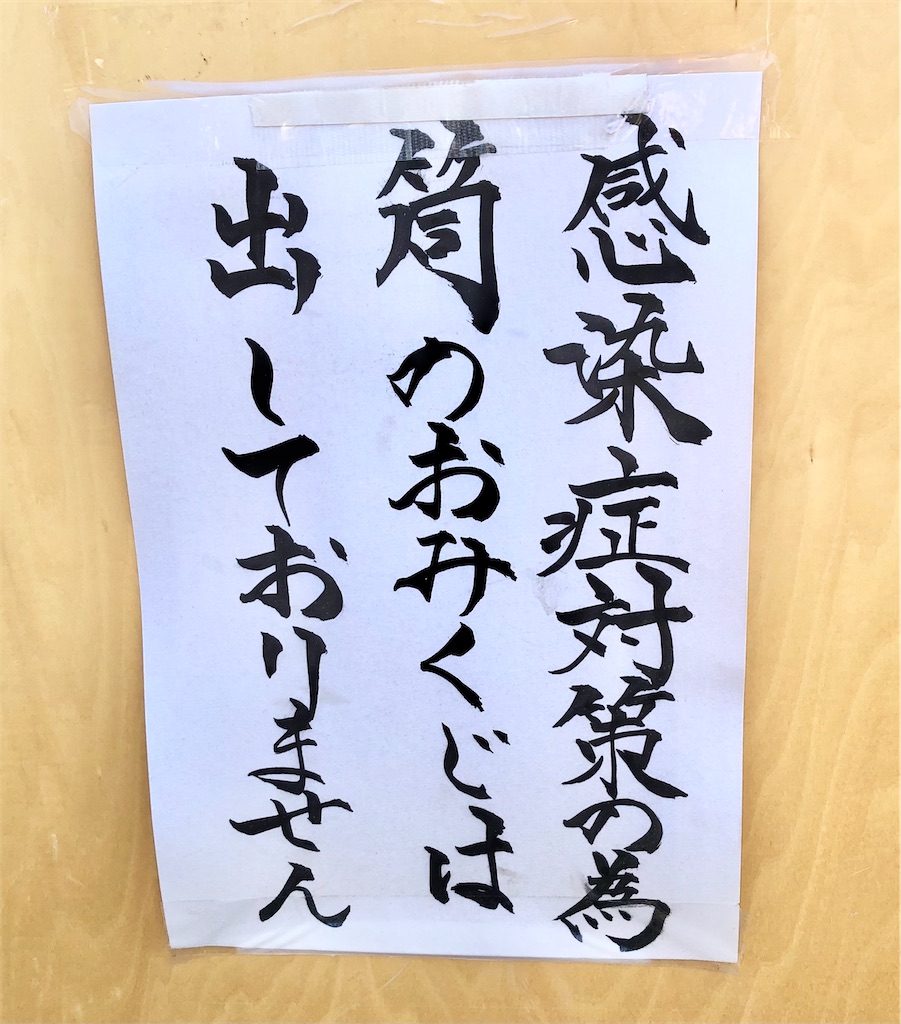 感染症対策の為
筒のおみくじは
出しておりません